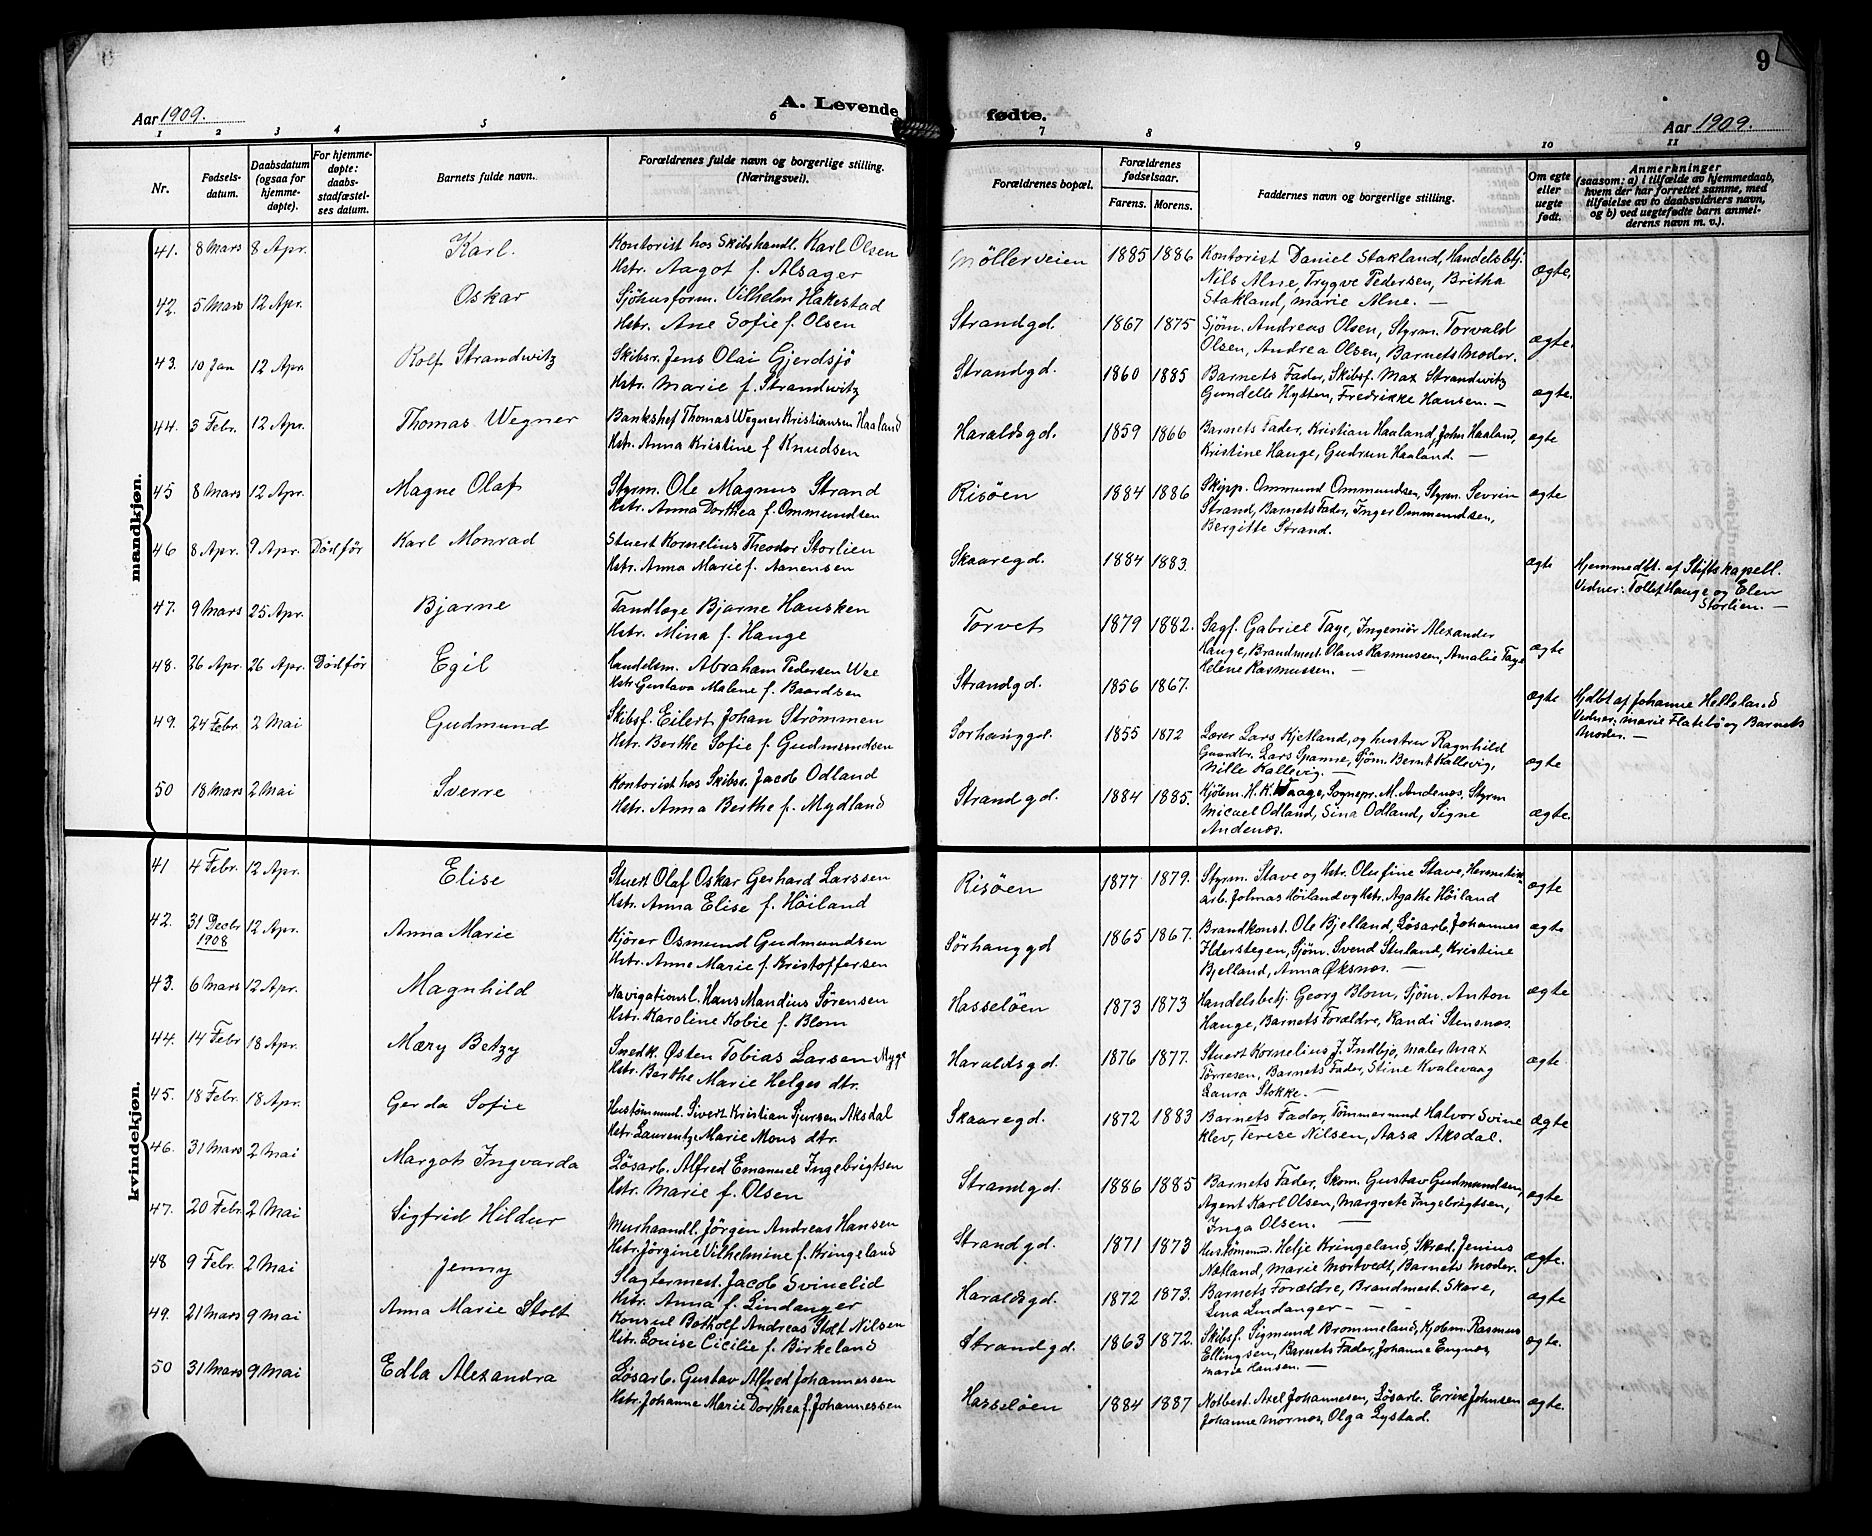 9
A. Levende fødte.
Aar 1909. Aar 1909.
1 2 3 4 5 6 7 8 9 10 11
Nr.
Fødsels-
datum.
Daabsdatum
(ogsaa for
hjemme-
døpte).
For hjemme-
døpte:
daabs-
stadfæstel-
ses datum.
Barnets fulde navn.
Forældrenes fulde navn og borgerlige stilling.
(Næringsvei).
Forældrenes bopæl.
Forældrenes
fødselsaar.
Farens. Morens.
Faddernes navn og borgerlige stilling.
Om egte
eller
uegte
født.
Anmerkninger
(saasom: a) i tilfælde av hjemmedaab,
hvem der har forrettet samme, med
tilføielse av to daabsvidners navn,
og b) ved uegtefødte barn anmel-
derens navn m. v.).
mandkjøn.
41. 8 Mars 8 Apr. Karl. Kontorist hos Skibshandl. Karl Olsen Møllerveien 1885 1886 Kontorist Daniel Stakland, Handelsbtj. ægte.
Hstr. Aagot f. Alsager Nils Alne, Trygve Pedersen, Britha
Stakland, Marie Alne. —
42. 5 Mars 12 Apr. Oskar Sjøhusform. Vilhelm Hakestad Strandgd. 1867 1875 Sjøm. Andreas Olsen, Styrm. Torvald ægte.
Hstr. Ane Sofie f. Olsen Olsen, Andrea Olsen, Barnets Moder.
43. 10 Jan 12 Apr. Rolf Strandwitz Skibsr. Jens Olai Gjerdsjø Strandgd. 1860 1885 Barnets Fader, Skibsf. Max Strandwitz ægte.
Hstr. Marie f. Strandwitz Gundelle Hytten, Fredrikke Hansen. —
44. 3 Febr. 12 Apr. Thomas Wegner Bankshef Thomas Wegner Kristiansen Haaland Haraldsgd. 1859 1866 Barnets Fader, Kristian Haaland, John Haaland, ægte
Hstr. Anna Kristine f Knudsen Kristine Hauge, Gudrun Haaland. —
45 8 Mars 12 Apr. Magne Olaf Styrm. Ole Magnus Strand Risøen 1884 1886 Skipp. Ommund Ommundsen, Styrm. Sevrin ægte
Hstr. Anna Dorthea f. Ommundsen Strand, Barnets Fader, Inger Ommundsen,
Bergitte Strand.
46 8 Apr. 9 Apr. Død før Karl Monrad Stuert Kornelius Theodor Storlien Skaaregd. 1884 1883. ægte Hjemmedbt. af Stiftskapell.
Hstr. Anna Marie f. Aanensen Vidner: Tollef Hauge og Elen
Storlien. —
47. 9 Mars 25 Apr. Bjarne Tandlæge Bjarne Hausken Torvet 1879 1882. Sagf. Gabriel Taye, Ingeniør Alexander ægte
Hstr. Mina f. Hauge Hauge, Brandmest. Olaus Rasmussen, Amalie Taye
Helene Rasmussen. —
48. 26 Apr. 26 Apr. Død før Egil Handelsm. Abraham Pedersen Wee Strandgd. 1856 1867. ægte Hjdbt af Johanne Helleland
Hstr. Gustava Malene f. Baardsen Vidner: Marie Flatebø og Barnets
Moder. —
49. 24 Febr. 2 Mai Gudmund Skibsf. Eilert Johan Strømmen Sørhauggd. 1855 1872 Lærer Lars Kjetland, og hustru Ragnhild ægte
Hstr. Berthe Sofie f. Gudmundsen Lars Spanne, Sjøm. Bernt Kallevig,
Nille Kallevig. —
50 18 Mars 2 Mai Sverre Kontorist hos Skibsr. Jacob Odland Strandgd. 1884 1885. Kjøbm. H. K. Waage, Sognepr. M. Andenæs, Styrm ægte.
Hstr. Anna Berthe f. Mydland Micael Odland, Sina Odland, Signe
Andenæs.
kvindekjøn.
41 4 Febr. 12 Apr. Elise Stuert Olaf Oskar Gerhard Larssen Risøen 1877 1879. Styrm. Stave og Hstr. Olufine Stave, Hermetik= ægte
Hstr. Anna Elise f. Høiland arb. Johnas Høiland og Hstr. Agathe Høiland
42. 31 Decbr 1908 12 Apr. Anna Marie Kjører Osmund Gudmundsen Sørhauggd 1865 1867. Brandkonst. Ole Bjelland, Løsarb. Johannes ægte
Hstr. Anne Marie f. Kristoffersen Ilderstegen, Sjøm. Svend Stusland, Kristine
Bjelland, Anna Øksnæs. —
43. 6 Mars 12 Apr. Magnhild Navigationsl. Hans Mandius Sørensen Hasseløen 1873 1873 Handelsbetj. Georg Blom, Sjøm. Anton ægte
Hstr. Karoline Kobie f. Blom Hauge, Barnets Forældre, Randi Stensnæs.
44. 14 Febr 18 Apr. Mæry Betzy Snedk. Østen Tobias Larsen Myge Haraldsgd. 1876 1877. Stuert Kornelius J. Indbjo, Maler Max ægte
Hstr. Berthe Marie Helges dtr. Tørresen, Barnets Fader, Stine Kvalevaag
Laura Stokke. —
45. 18 Febr. 18 Apr. Gerda Sofie Hustømmd. Sivert Kristian Sjursen Aksdal Skaaregd. 1872 1883 Barnets Fader, Tømmermnd Halvor Svine ægte
Hstr. Laurentze Marie Mons dtr. klev, Terese Nilsen, Aasa Aksdal.
46. 31 Mars 2 Mai Margoth Ingvarda Løsarb. Alfred Emanuel Ingebrigtsen Strandgd. 1886 1885 Barnets Fader, Skom. Gustav Gudmundsen, ægte
Hstr. Marie f. Olsen Agent Karl Olsen, Margrete Ingebrigtsen,
Inga Olsen. —
47. 20 Febr. 2 Mai Sigfrid Hildur Murhaandl. Jørgen Andreas Hansen Strandgd. 1871 1873 Hustømmd. Helje Kringeland, Skræd. Jenius ægte.
Hstr. Jørgine Vilhelmine f. Kringeland Nætland, Marie Mortvedt, Barnets Moder.
48 9 Febr. 2 Mai Jenny Slagtermest. Jacob Svinelid Haraldsgd. 1872 1873. Barnets Forældre, Brandmest. Skare, ægte
Hstr. Anna f. Lindanger Lina Lindanger — — —
49. 21 Mars 9 Mai Anna Marie Stolt Konsul Botholf Andreas Stolt Nilsen Strandgd. 1863 1872. Skibsf. Sigmund Brommeland, Kjøbm. Rasmus ægte.
Hstr. Louise Cicilie f. Birkeland Ellingsen, Barnets Fader, Johanne Engnæs,
Marie Hansen. —
50 31 Mars 9 Mai Edla Alexandra Løsarb. Gustav Alfred Johannessen Hasseløen 1884 1887 Notbest. Axel Johannesen, Løsarb. Johnsen ægte.
Hstr. Johanne Marie Dorthea f. Johannessen Johanne Mornæs, Olga Lystad.